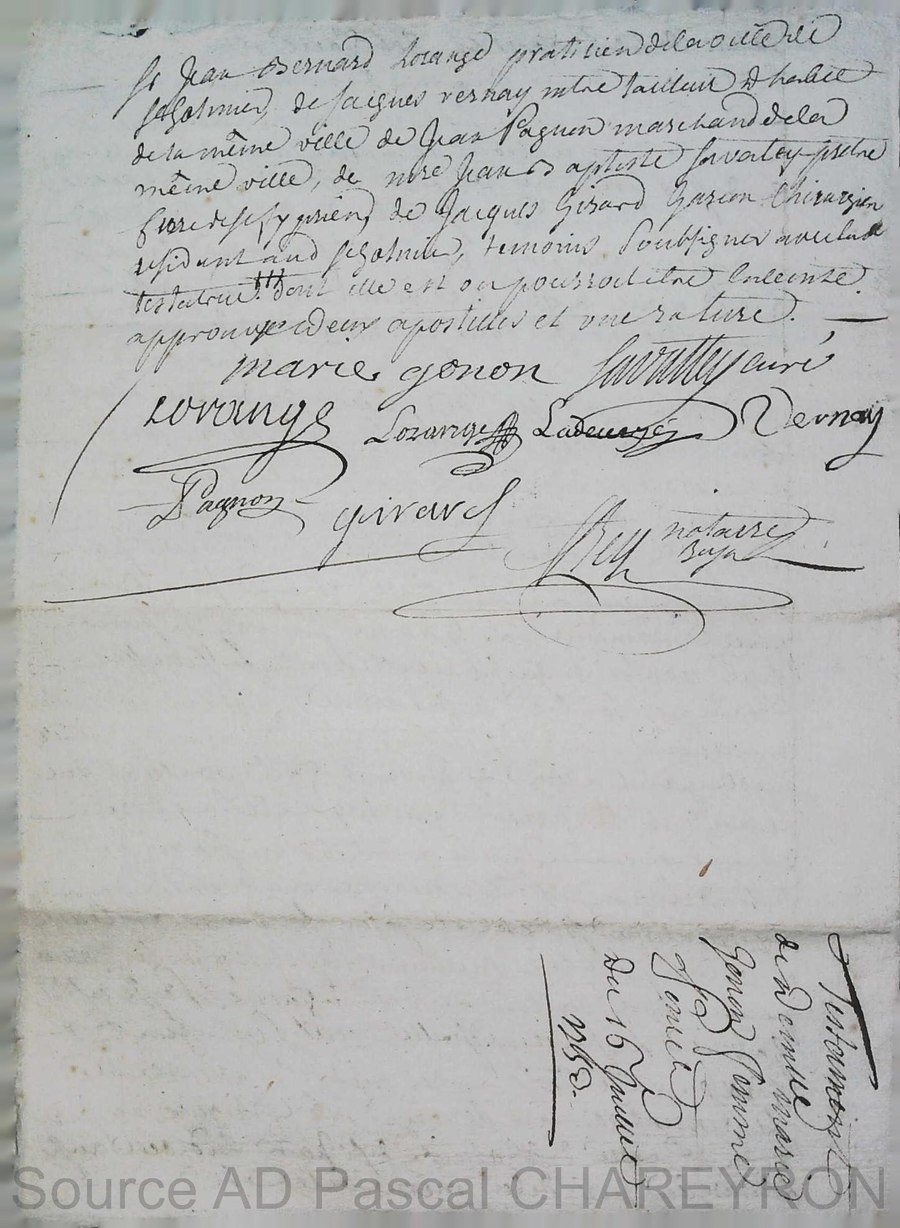 Sr Jean Bernard Lorange praticien de la ville de
St Galmier, de Jacques vernay mtre tailleur d habit
de la même ville de Jean Pagnon marchand de la
même ville, de mre Jean B aptiste Savatey pretre
Curé de St Cyprien, de Jacques Girard Garcon Chirurgien
residant aud St Galmier, temoins Soubsignes avec la
testatrice dont elle est ou pourroit etre Enceinte
approuve deux apostilles et une rature.
marie gonon Savattey curé
Lorange Lorange Ladeveze Vernay
Pagnon girard
Rey notaire
Royal
Testament
de Domlle marie
Gonon femme
du 15 Juillet